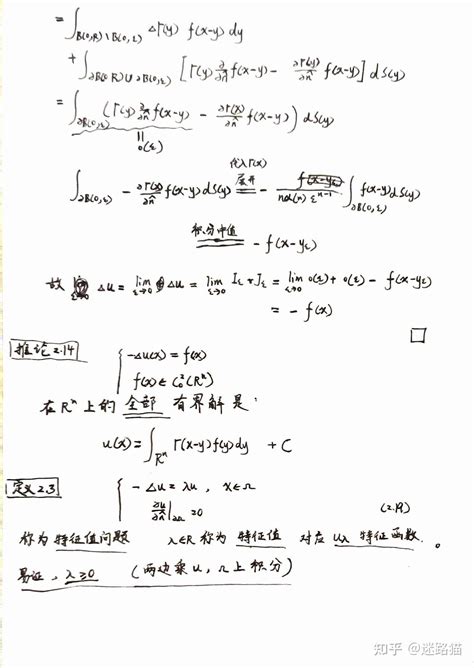 = ∫_{B(0,R)\B(0,ε)} ΔΓ(y) f(x-y) dy
+ ∫_{∂B(0,R)∪∂B(0,ε)} [Γ(y) ∂/∂n⃗ f(x-y) - ∂Γ(y)/∂n⃗ f(x-y)] dS(y)
= ∫_{∂B(0,ε)} (Γ(y) ∂/∂n⃗ f(x-y) - ∂Γ(x)/∂n⃗ f(x-y)) dS(y)
‖
o(ε)
∫_{∂B(0,ε)} - ∂Γ(x)/∂n⃗ f(x-y) dS(y) 代入Γ(x) 展开 = - 1/(nα(n) ε^{n-1}) ∫_{∂B(0,ε)} f(x-y) dS(y)
积分中值 = - f(x-y_ε)
故 Δu = lim_{ε→0} Δu = lim_{ε→0} I_ε + J_ε = lim_{ε→0} o(ε) + o(ε) - f(x-y_ε)
= - f(x)
□
推论2.14 { -Δu(x) = f(x)
f(x) ∈ C_0^2(R^n)
在 R^n 上的 全部 有界解是:
u(x) = ∫_{R^n} Γ(x-y) f(y) dy + C
定义2.3 { - Δu = λu , x∈Ω
∂u/∂n⃗|_{∂Ω} = 0 (2.19)
称为 特征值问题 λ∈R 称为 特征值 对应 u_λ 特征函数.
易证, λ≥0 (两边乘u, Ω上积分)
知乎 @迷路猫